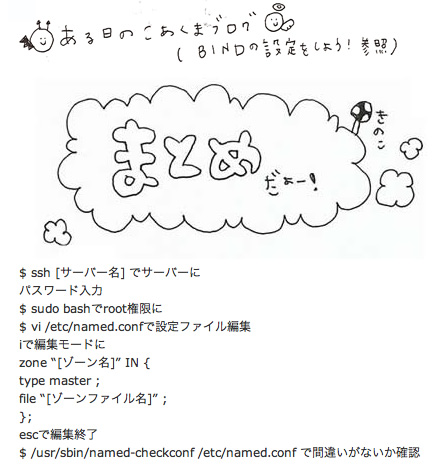 ある日のこあくまブログ
(BINDの設定をしよう!参照)
きのこ
まとめ
だよー!
$ ssh [サーバー名] でサーバーに
パスワード入力
$ sudo bashでroot権限に
$ vi /etc/named.confで設定ファイル編集
iで編集モードに
zone “[ゾーン名]” IN {
type master ;
file “[ゾーンファイル名]” ;
};
escで編集終了
$ /usr/sbin/named-checkconf /etc/named.conf で間違いがないか確認